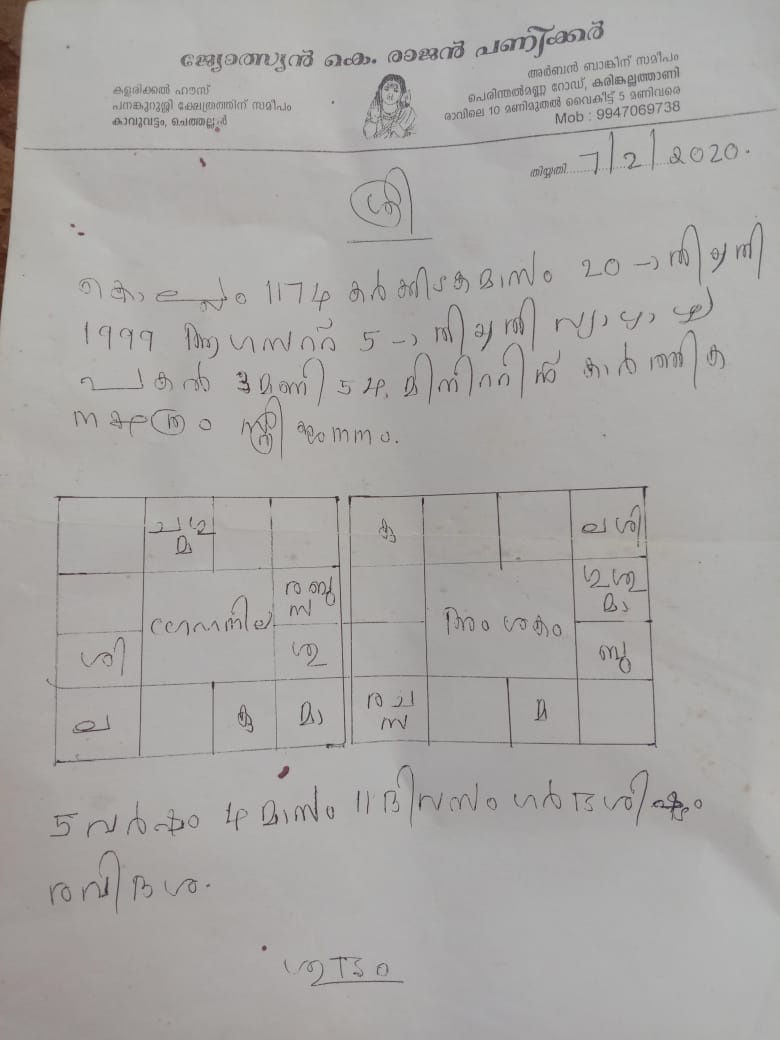 ജ്യോത്സ്യൻ കെ. രാജൻ പണിക്കർ
കളരിക്കൽ ഹൗസ്
പനങ്കുറുശ്ശി ക്ഷേത്രത്തിന് സമീപം
കാവുവട്ടം, ചെത്തല്ലൂർ
അർബൻ ബാങ്കിന് സമീപം
പെരിന്തൽമണ്ണ റോഡ്, കരിങ്കല്ലത്താണി
രാവിലെ 10 മണിമുതൽ വൈകീട്ട് 5 മണിവരെ
Mob : 9947069738
തിയ്യതി 7/2/2020.
ശ്രീ
കൊല്ലം 1174 കർക്കിടകമാസം 20-ാംതിയ്യതി
1999 ആഗസ്റ്റ് 5-ാംതിയ്യതി വ്യാഴാഴ്ച
പകൽ 3മണി 54 മിനിറ്റിന് കാർത്തിക
നക്ഷത്രം സ്ത്രീ ജനനം.
ച ശു
മ
ര ബു
സ
ഗ്രഹനില
ശി
ശു
ല
കു
മാ
കു
ല ശി
ഗു ശു
മാ
അംശകം
ബു
ര ച
സ
മ
5 വർഷം 4 മാസം 11 ദിവസം ഗർഭശിഷ്ടം
രവിദശ.
ശുഭം